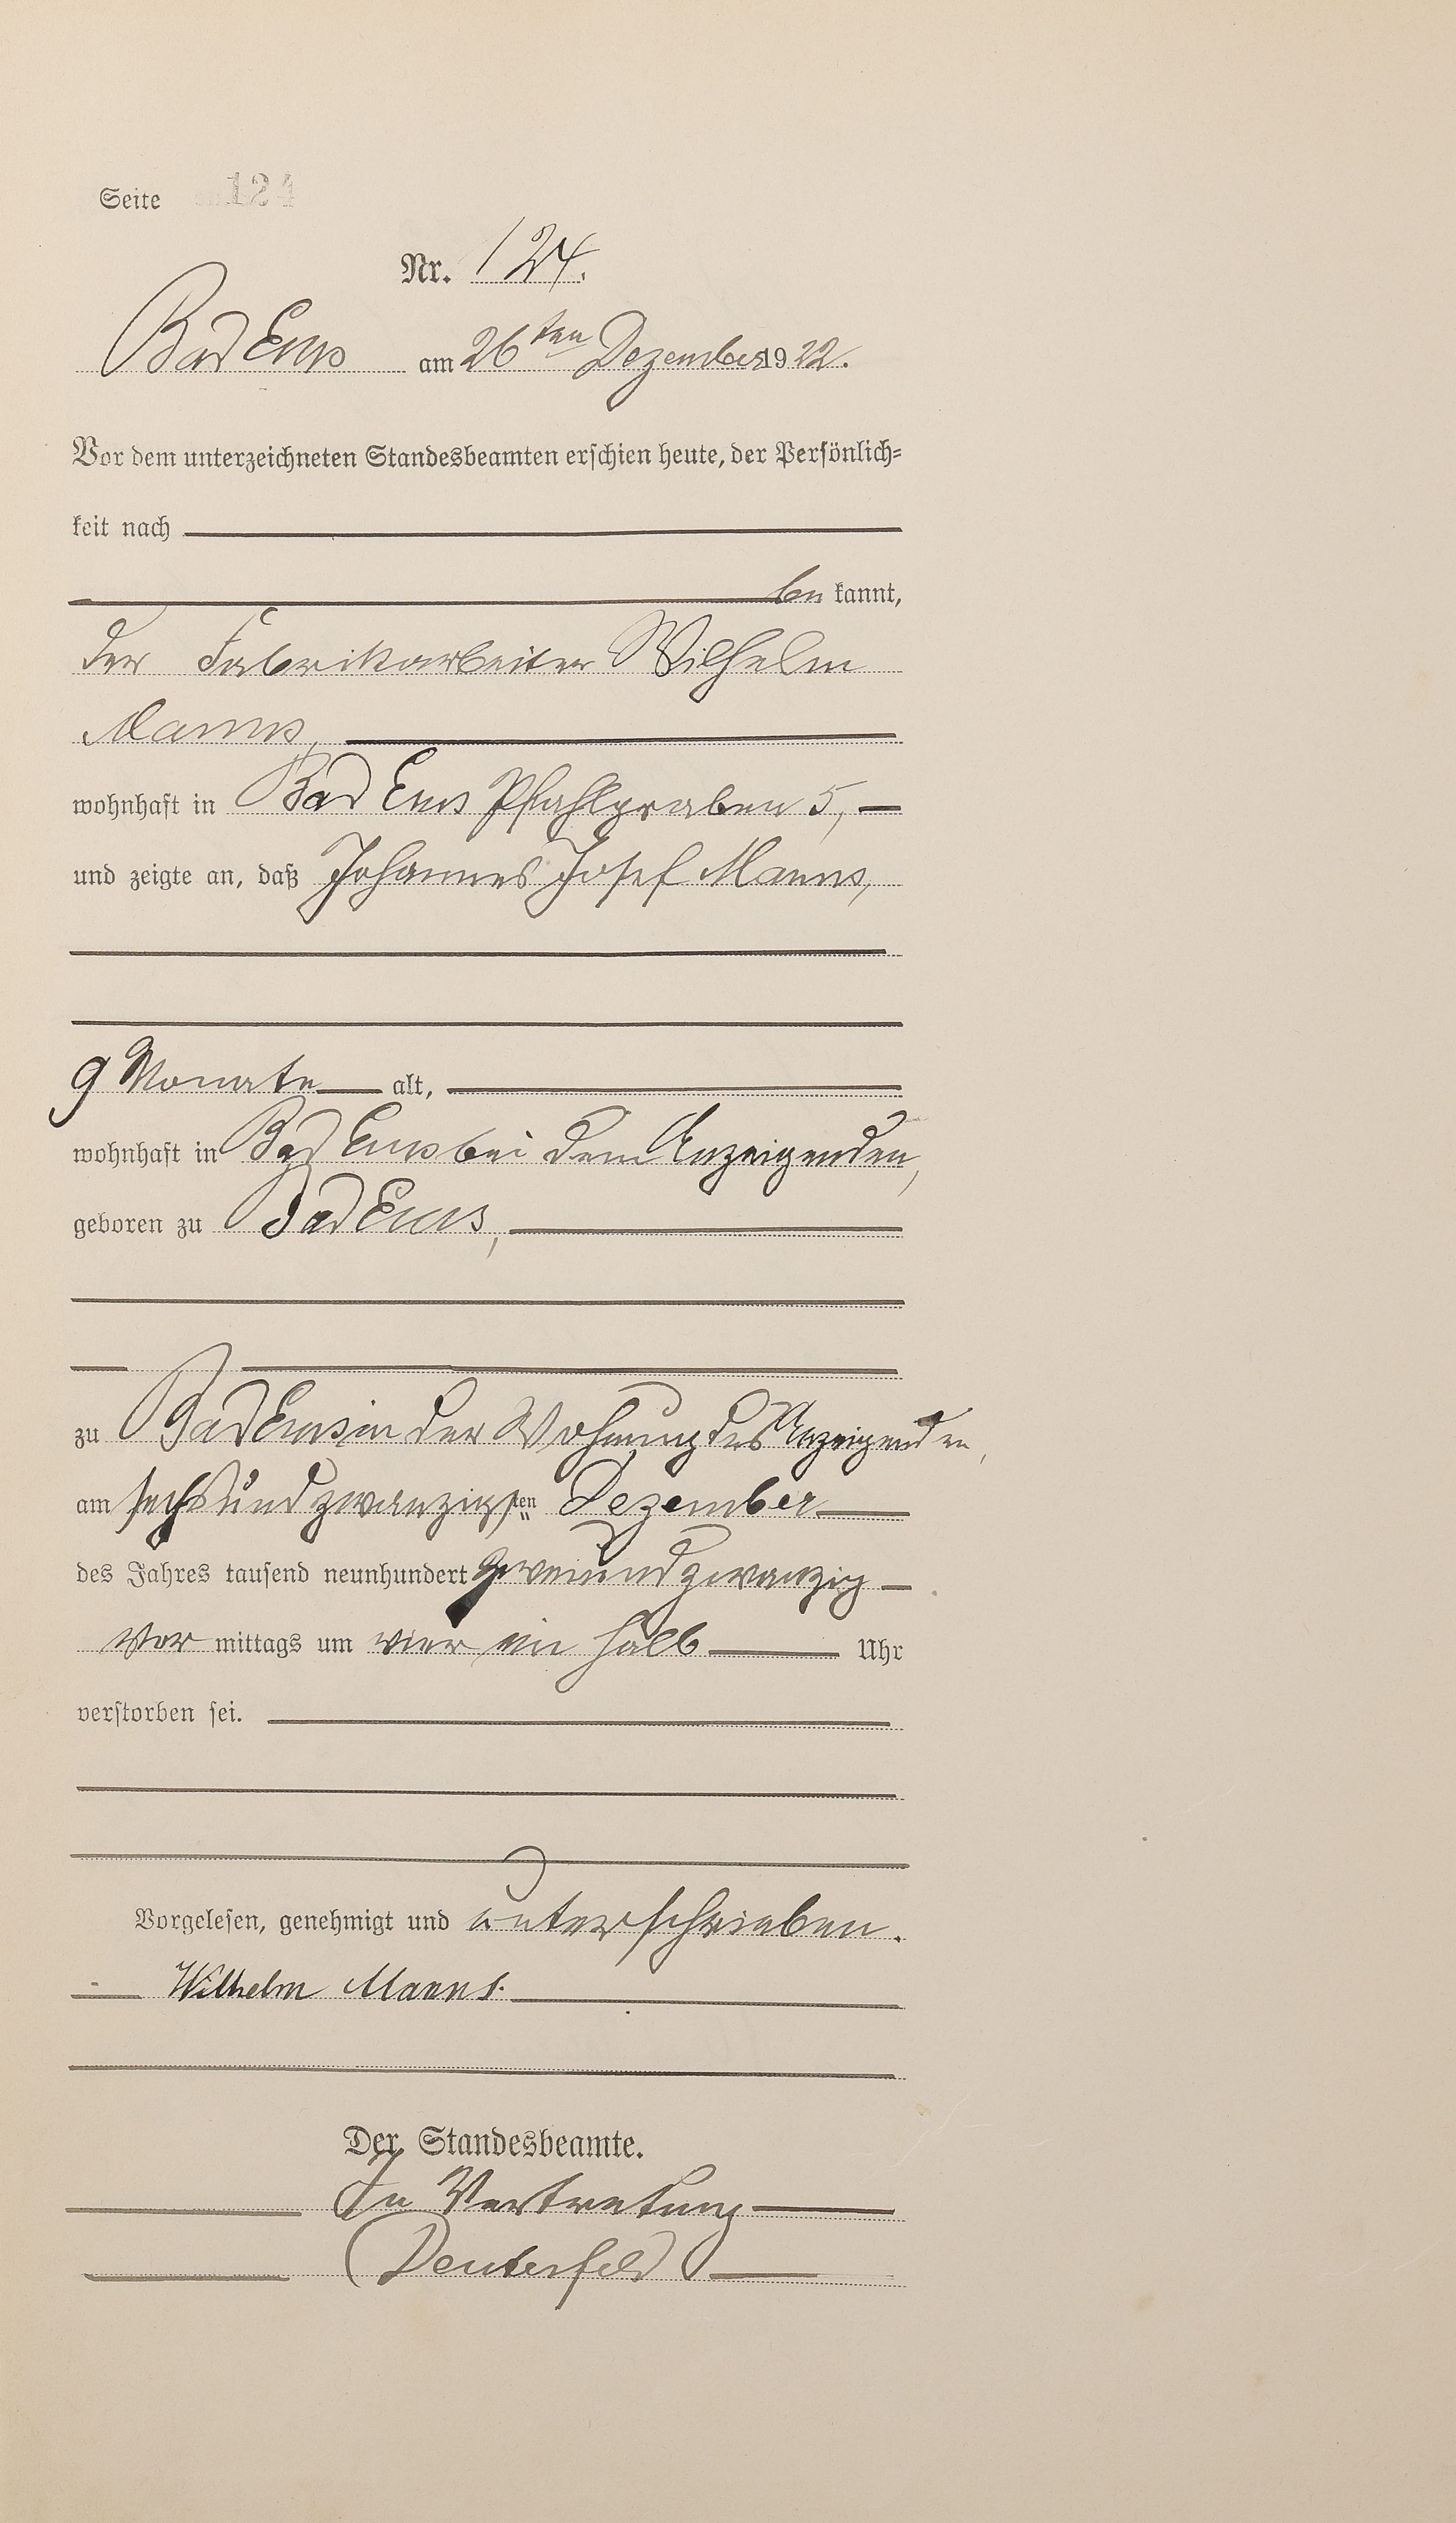 Seite 124
Nr. 124.
Bad Ems am 26ten Dezember 1922.
Vor dem unterzeichneten Standesbeamten erschien heute, der Persönlich=
keit nach
be kannt,
der Fabrikarbeiter Wilhelm
Manns,
wohnhaft in Bad Ems Pfahlgraben 5,
und zeigte an, daß Johannes Josef Manns,
9 Monate alt,
wohnhaft in Bad Ems bei dem Anzeigenden,
geboren zu Bad Ems,
zu Bad Ems in der Wohnung des Anzeigenden,
am sechsundzwanzigsten Dezember
des Jahres tausend neunhundert zweiundzwanzig
vor mittags um vier ein halb Uhr
verstorben sei.
Vorgelesen, genehmigt und unterschrieben.
Wilhelm Manns.
Der Standesbeamte.
In Vertretung